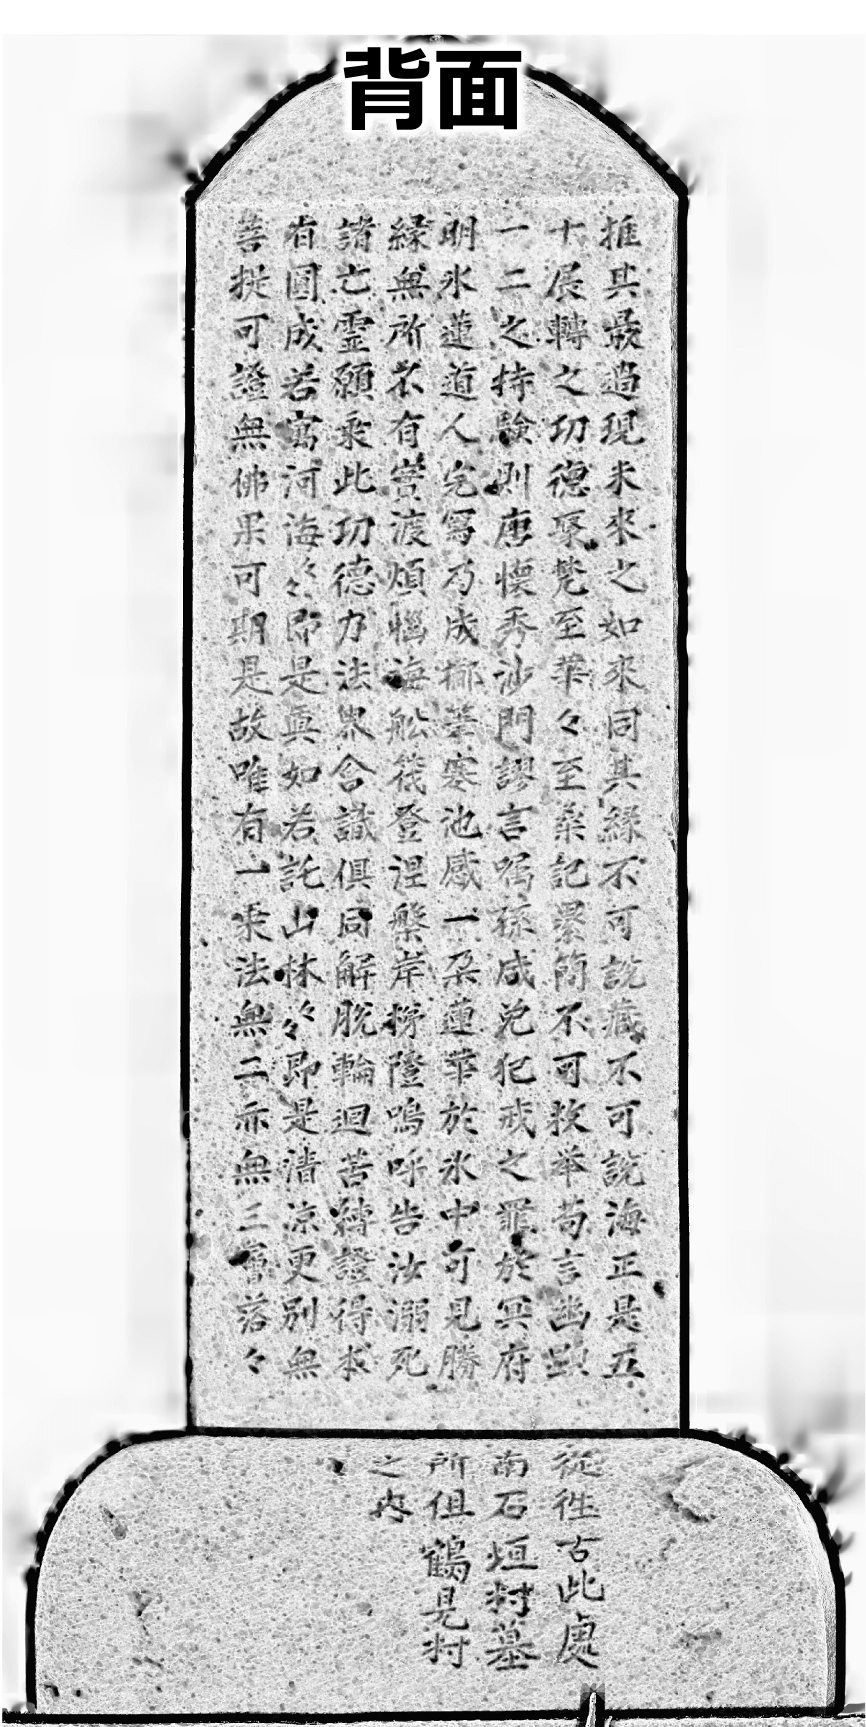 背面
推其最過現未來之如來同其縁不可說蔵不可說海正是五
十展轉之功德聚梵至華々至桑記累簡不可枚举苟言幽顕
一二之持験則唐懐秀沙門謬言嘱孫咸免犯戒之罪於冥府
明氷蓮道人先写乃成擲筆寒池感一朶蓮華於氷中可見勝
縁無所不有實渡煩惱海舩筏登涅槃岸梯隥嗚呼告汝溺死
諸亡霊願乘此功德力法界含識俱同解脫輪迴苦轉證得本
有圓成若寓河海々々即是真如若託山林々々即是清凉更別無
菩提可證無佛果可期是故唯有一乘法無二亦無三 落々
從徃古此處
南石垣村墓
所但鶴見村
之内